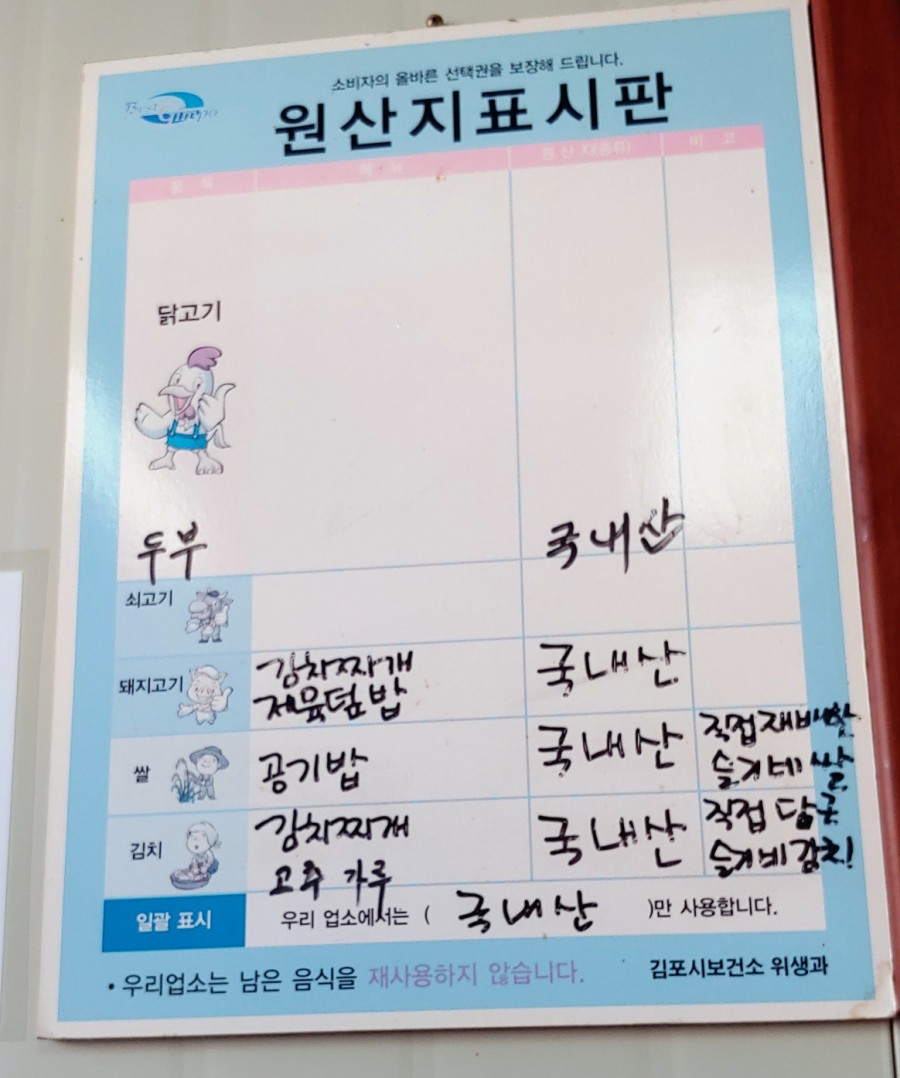 소비자의 올바른 선택권을 보장해 드립니다.
원산지표시판
품 목 메 뉴 원 산 지(종류) 비 고
닭고기
두부 국내산
쇠고기
돼지고기 김치찌개 국내산
제육덮밥
쌀 공기밥 국내산 직접재배한
슬기네 쌀
김치 김치찌개 국내산 직접 담근
고추 가루 슬기네김치!
일괄 표시 우리 업소에서는 ( 국내산 )만 사용합니다.
• 우리업소는 남은 음식을 재사용하지 않습니다. 김포시보건소 위생과